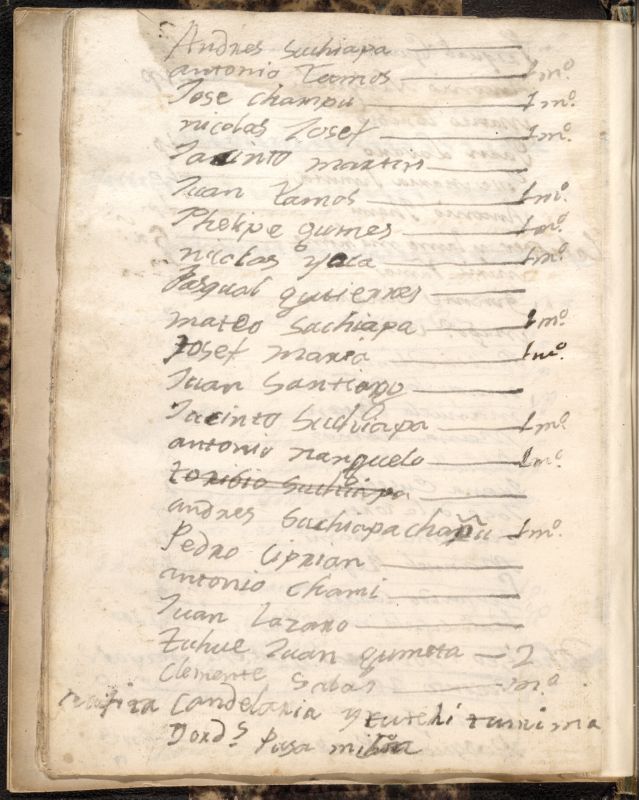 Andres Suchiapa
antonio Ramos 1 mo.
Jose champu 1 mo.
nicolas Josef 1 mo.
Jacinto martin
Juan Ramos 1 mo.
Phelipe gumes 1 mo.
nicolas 1 mo.
Pasqual gutierres
mateo Suchiapa 1 mo.
Josef maria 1 mo.
Juan Santiago
Jacinto Suchiapa 1 mo.
antonio nanguelo 1 mo.
toribio Suchiapa
andres Suchiapa 1 mo.
Pedro Ciprian
antonio chami
Juan Lazaro
Juan gumeta 2
Clemente Sabas 1 mo.
Candelaria y